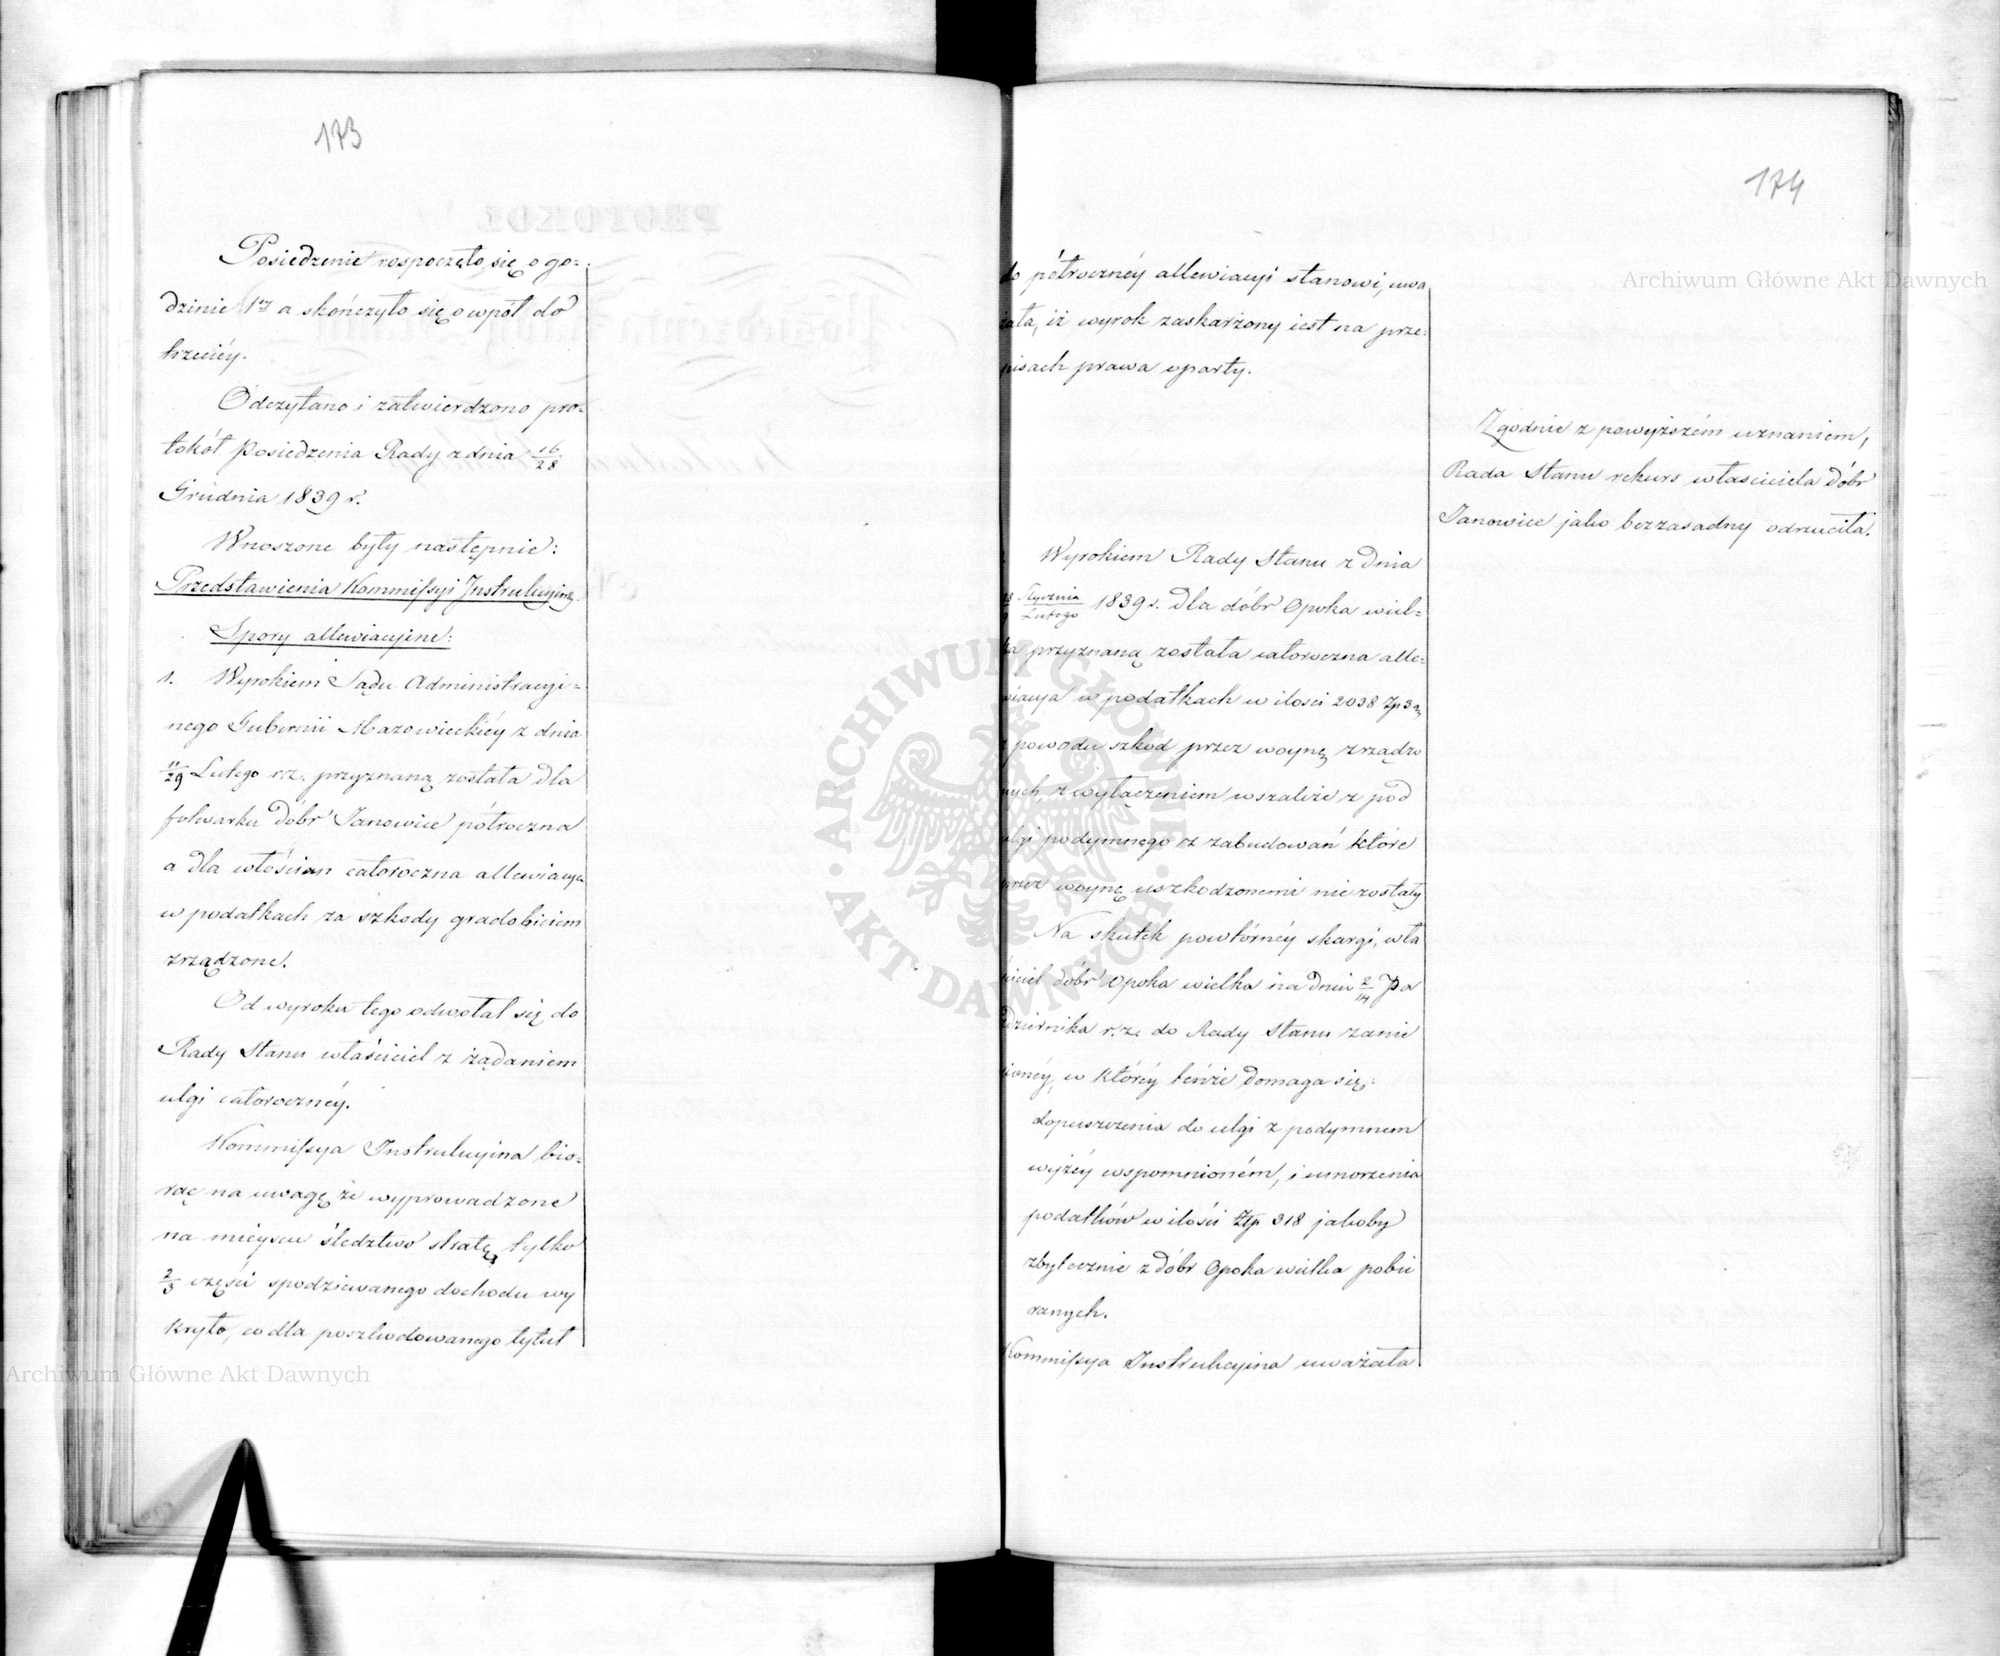 173
Posiedzenie rospoczęło się o go=
dzinie 1ey a skończyło się o wpół do
trzeciéy.
Odczytano i zatwierdzono pro=
tokół Posiedzenia Rady z dnia 16/28
Grudnia 1839 r.
Wnoszone były następnie:
Przedstawienia Kommissyi Instrukcyinéy.
Spory allewiacyine:
1. Wyrokiem Sądu Administracyi=
nego Gubernii Mazowieckiéy z dnia
/29 Lutego r.z. przyznaną została dla
folwarku dóbr Janowice półroczna
a dla włościan całoroczna allewiacya
w podatkach za szkody gradobiciem
zrządzone.
Od wyroku tego odwołał się do
Rady Stanu właściciel z żądaniem
ulgi całorocznéy.
Kommissya Instrukcyina bio=
rąc na uwagę że wyprowadzone
na mieyscu śledztwo stratę tylko
2/3 części spodziewanego dochodu wy
kryło, co dla poszkodowanego tytuł
174
do półrocznéy allewiacyi stanowi, uwa
żała, iż wyrok zaskarżony iest na prze=
pisach prawa oparty.
Zgodnie z powyższém uznaniem,
Rada Stanu rekurs właściciela dóbr
Janowice jako bezzasadny odrzuciła.
Wyrokiem Rady Stanu z dnia
Stycznia/Lutego 1839 r. dla dóbr Opoka wiel=
ka przyznaną została całoroczna alle=
wiacya w podatkach w ilości 2038 Zp 3
z powodu szkod przez woynę zrządzo
nych z wyłączeniem wszakże z pod
ulgi podymnego z zabudowań które
przez woynę uszkodzonemi nie zostały
Na skutek powtórnéy skargi, wła
ściciel dóbr Opoka wielka na dniu 2/14 Pa
ździernika r.z. do Rady Stanu zanie
sionéy, w któréy tenże domaga się:
dopuszczenia do ulgi z podymnem
wyżéy wspomnioném, i umorzenia
podatków w ilości Złp 318 jakoby
zbytecznie z dóbr Opoka wielka pobie
ranych.
Kommissya Instrukcyina uważała
Archiwum Główne Akt Dawnych
Archiwum Główne Akt Dawnych
ARCHIWUM GŁÓWNE · AKT DAWNYCH ·